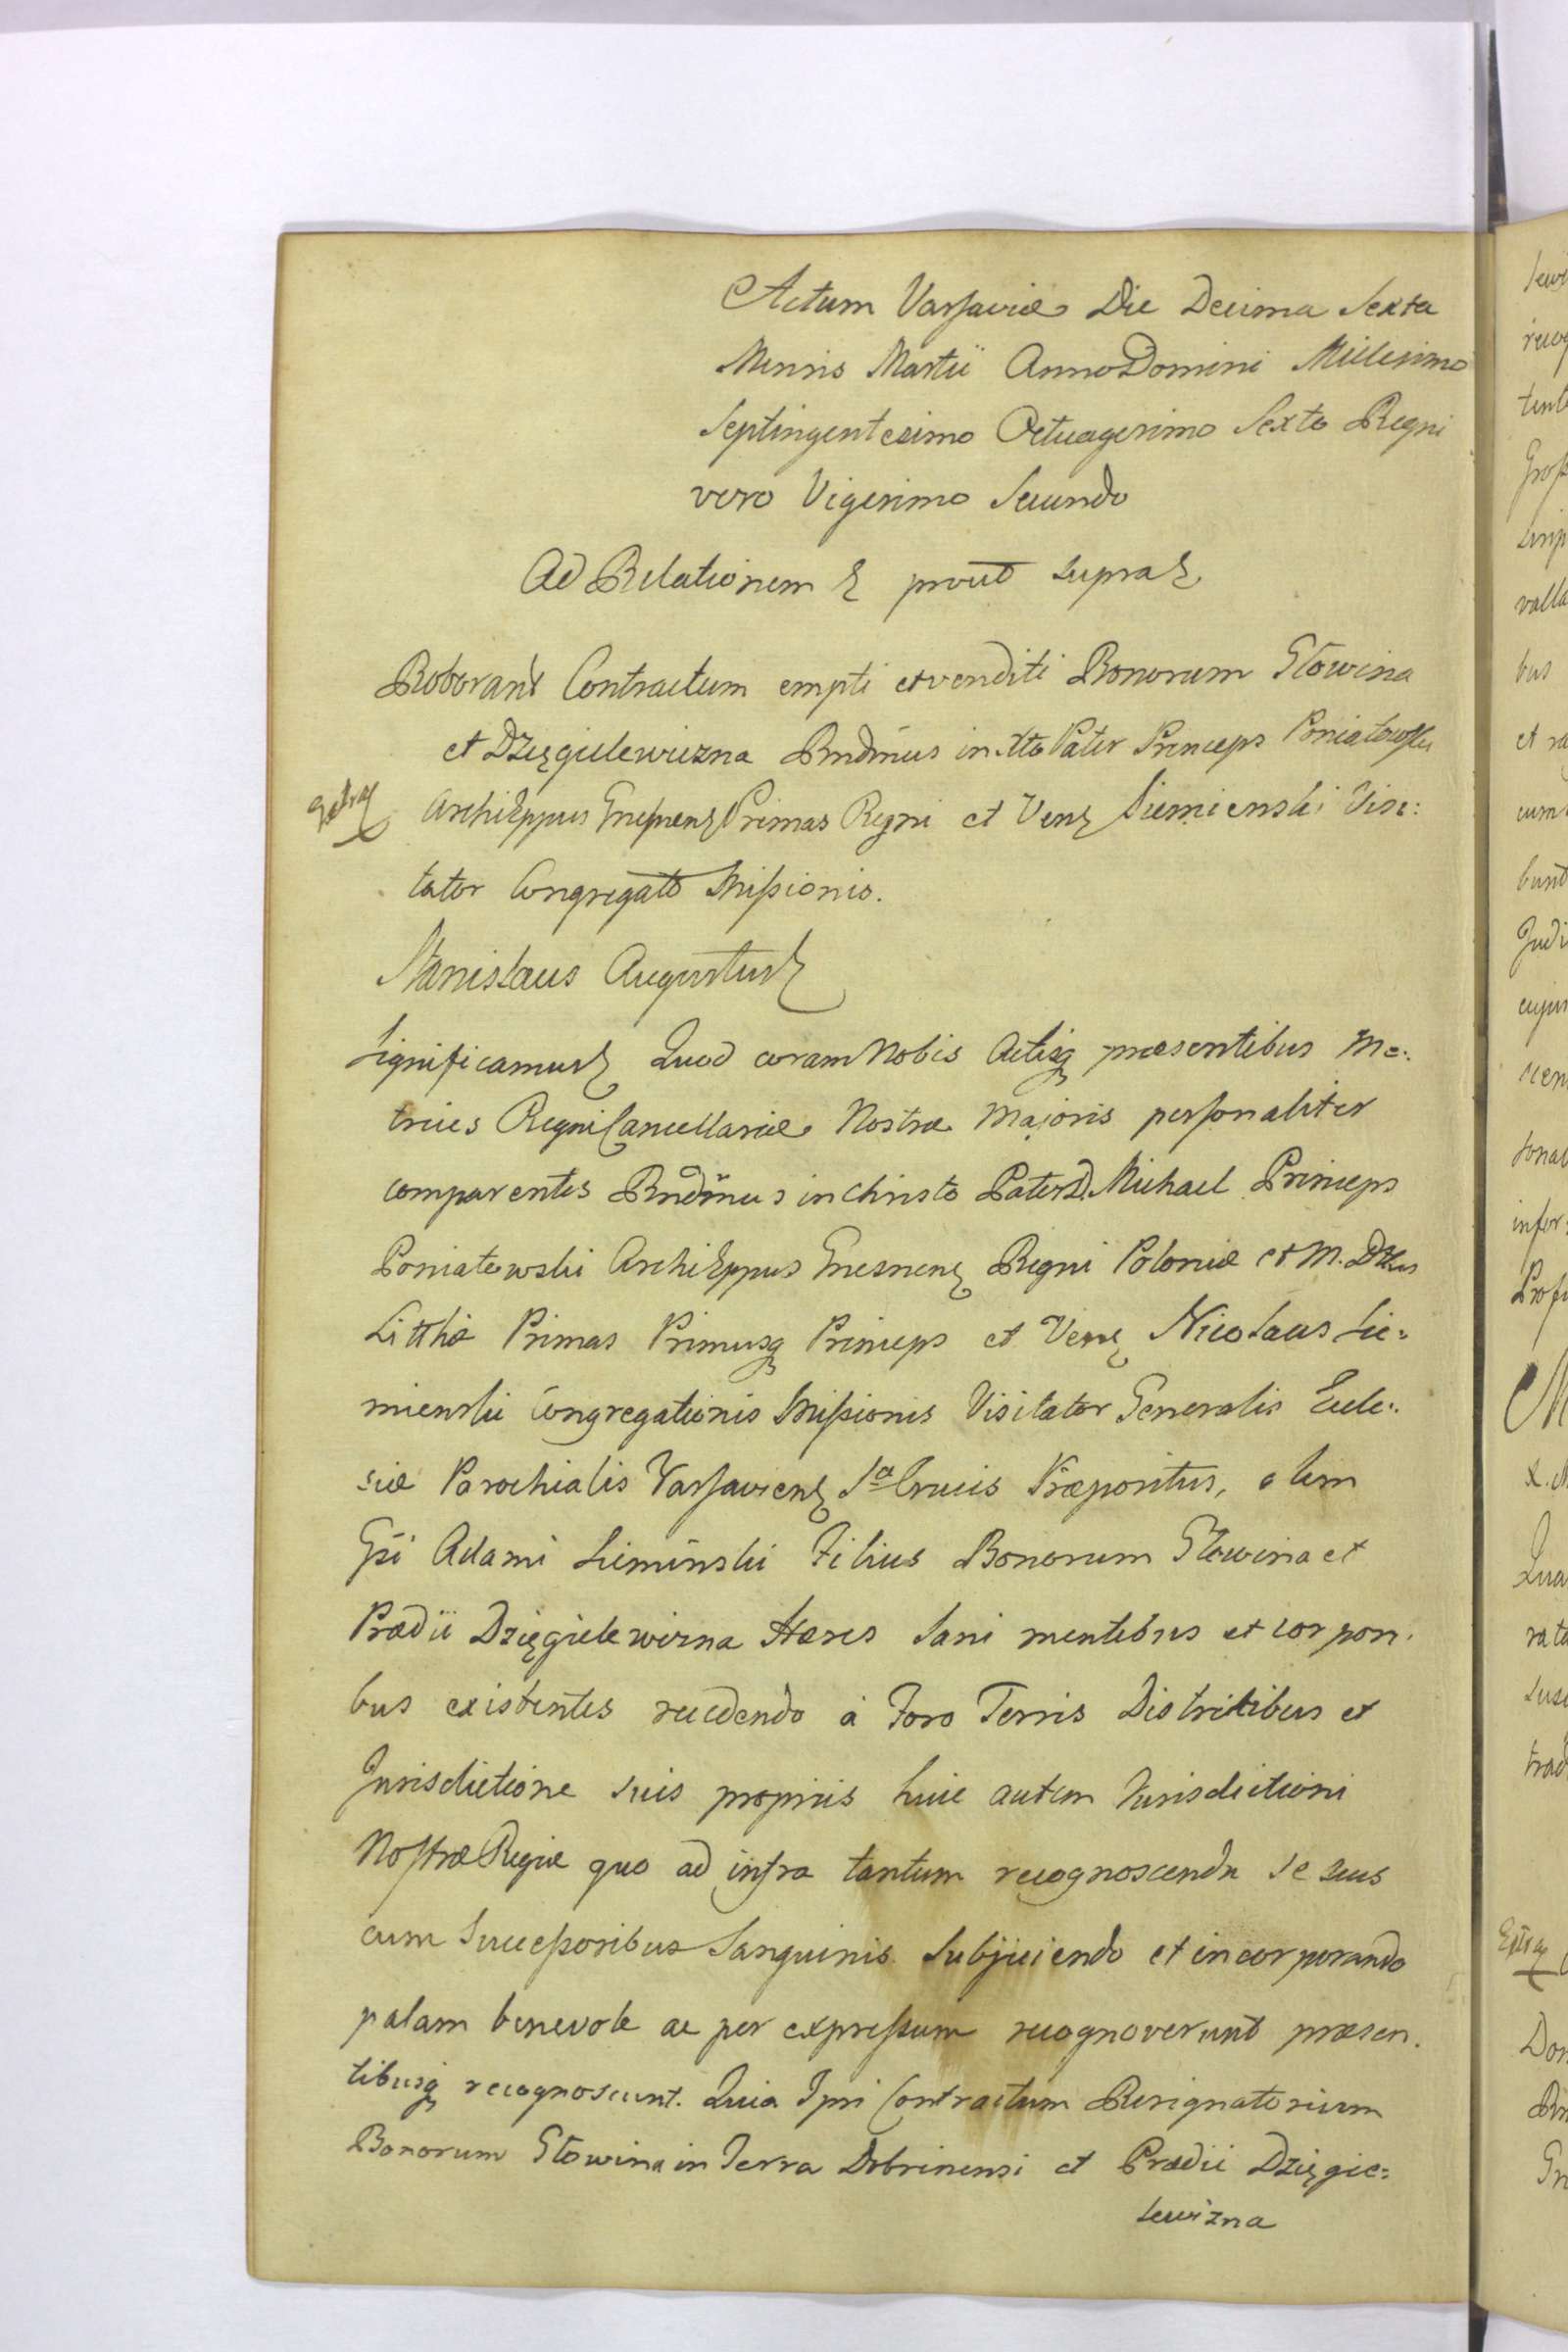 Actum Varsaviæ Die Decima Sexta
Mensis Martii Anno Domini Millesimo
Septingentesimo Octuagesimo Sexto Regni
vero Vigesimo Secundo
Ad Relationem & prout supra &
Roborant Contractum empti et venditi Bonorum Głowina
et Dzięgielewizna Rndmus in Xto Pater Princeps Poniatowski
ArchiEppus Gnesnens Primas Regni et Vens Siemienski Visi:
tator Congregatō Missionis.
Stanislaus Augustus &
Significamus & Quod coram Nobis Actisq præsentibus Me:
trices Regni Cancellariæ Nostræ Majoris personaliter
comparentes Rndmus in Christo Pater D. Michael Princeps
Poniatowski ArchiEppus Gnesnens Regni Poloniæ et M. D
Litthiæ Primas Primusq Princeps et Vens Nicolaus Sie:
mienski Congregationis Missionis Visitator Generalis Eccle:
siæ Parochialis Varsaviens Sæ Crucis Præpositus, olim
Gsi Adami Sieminski Filius Bonorum Głowina et
Prædii Dzięgielewizna Hæres Sani mentibus et corpori:
bus existentes recedendo à Foro Terris Districtibus et
Jurisdictione suis propriis huic autem Jurisdictioni
Nostræ Regiæ quo ad infra tantum recognoscenda se suus
cum Successoribus Sanguinis Subjiciendo et incorporando
palam benevole ac per expressum recognoverunt præsen:
tibusq recognoscunt. Quia Ipsi Contractum Resignatorium
Bonorum Głowina in Terra Dobrinensi et Prædii Dzięgie:
lewizna